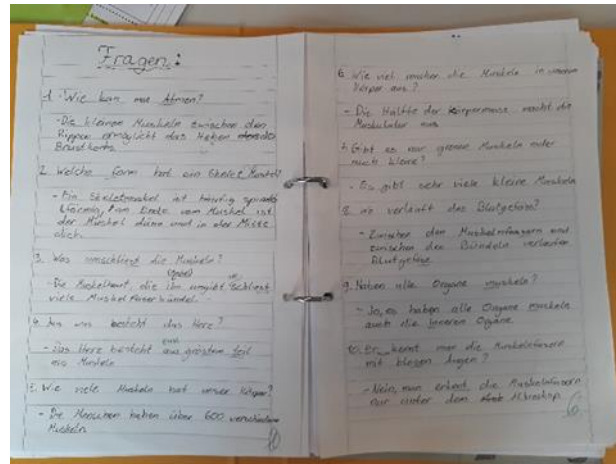 Fragen:
1. Wie kan man Atmen?
- Die kleinen Muskeln zwischen den
Rippen ermöglicht das Heben
Brustkorbs.
2. Welche form hat ein Skelet Muskel?
- Ein Skeletmuskel ist häufig spindel
förmig, am Ende vom Muskel ist
der Muskel düne und in der Mitte
dich.
3. Was umschliest die Muskeln?
- Die Muskelhaut, die ihn umgibt schliest
viele Muskelfaserbündel.
4. Aus was besteht das Herz?
- Das Herz besteht aus grösten teil
als Muskeln
5. Wie viele Muskeln hat unser Körper?
- Die Menschen haben über 600 verschiedene
Muskeln
6. Wie viel machen die Muskeln in unserem
Körper aus?
- Die Hälfte der körpermasse macht die
Muskulatur aus
7. Gibt es nur grosse Muskeln oder
auch kleine?
- Es gibt sehr viele kleine Muskeln
8. wo verläuft das Blutgefäss?
- Zwischen den Muskelnfassern und
zwischen den Bündeln verlaufen
Blutgefäse
9. Haben alle Organe muskeln?
- Ja, es haben alle Organe muskeln
auch die inneren Organe.
10. Er kennt man die Muskelnfasern
mit blosen Augen?
- Nein, man erkent die Muskelnfasern
nur unter dem Mikroskop.
6